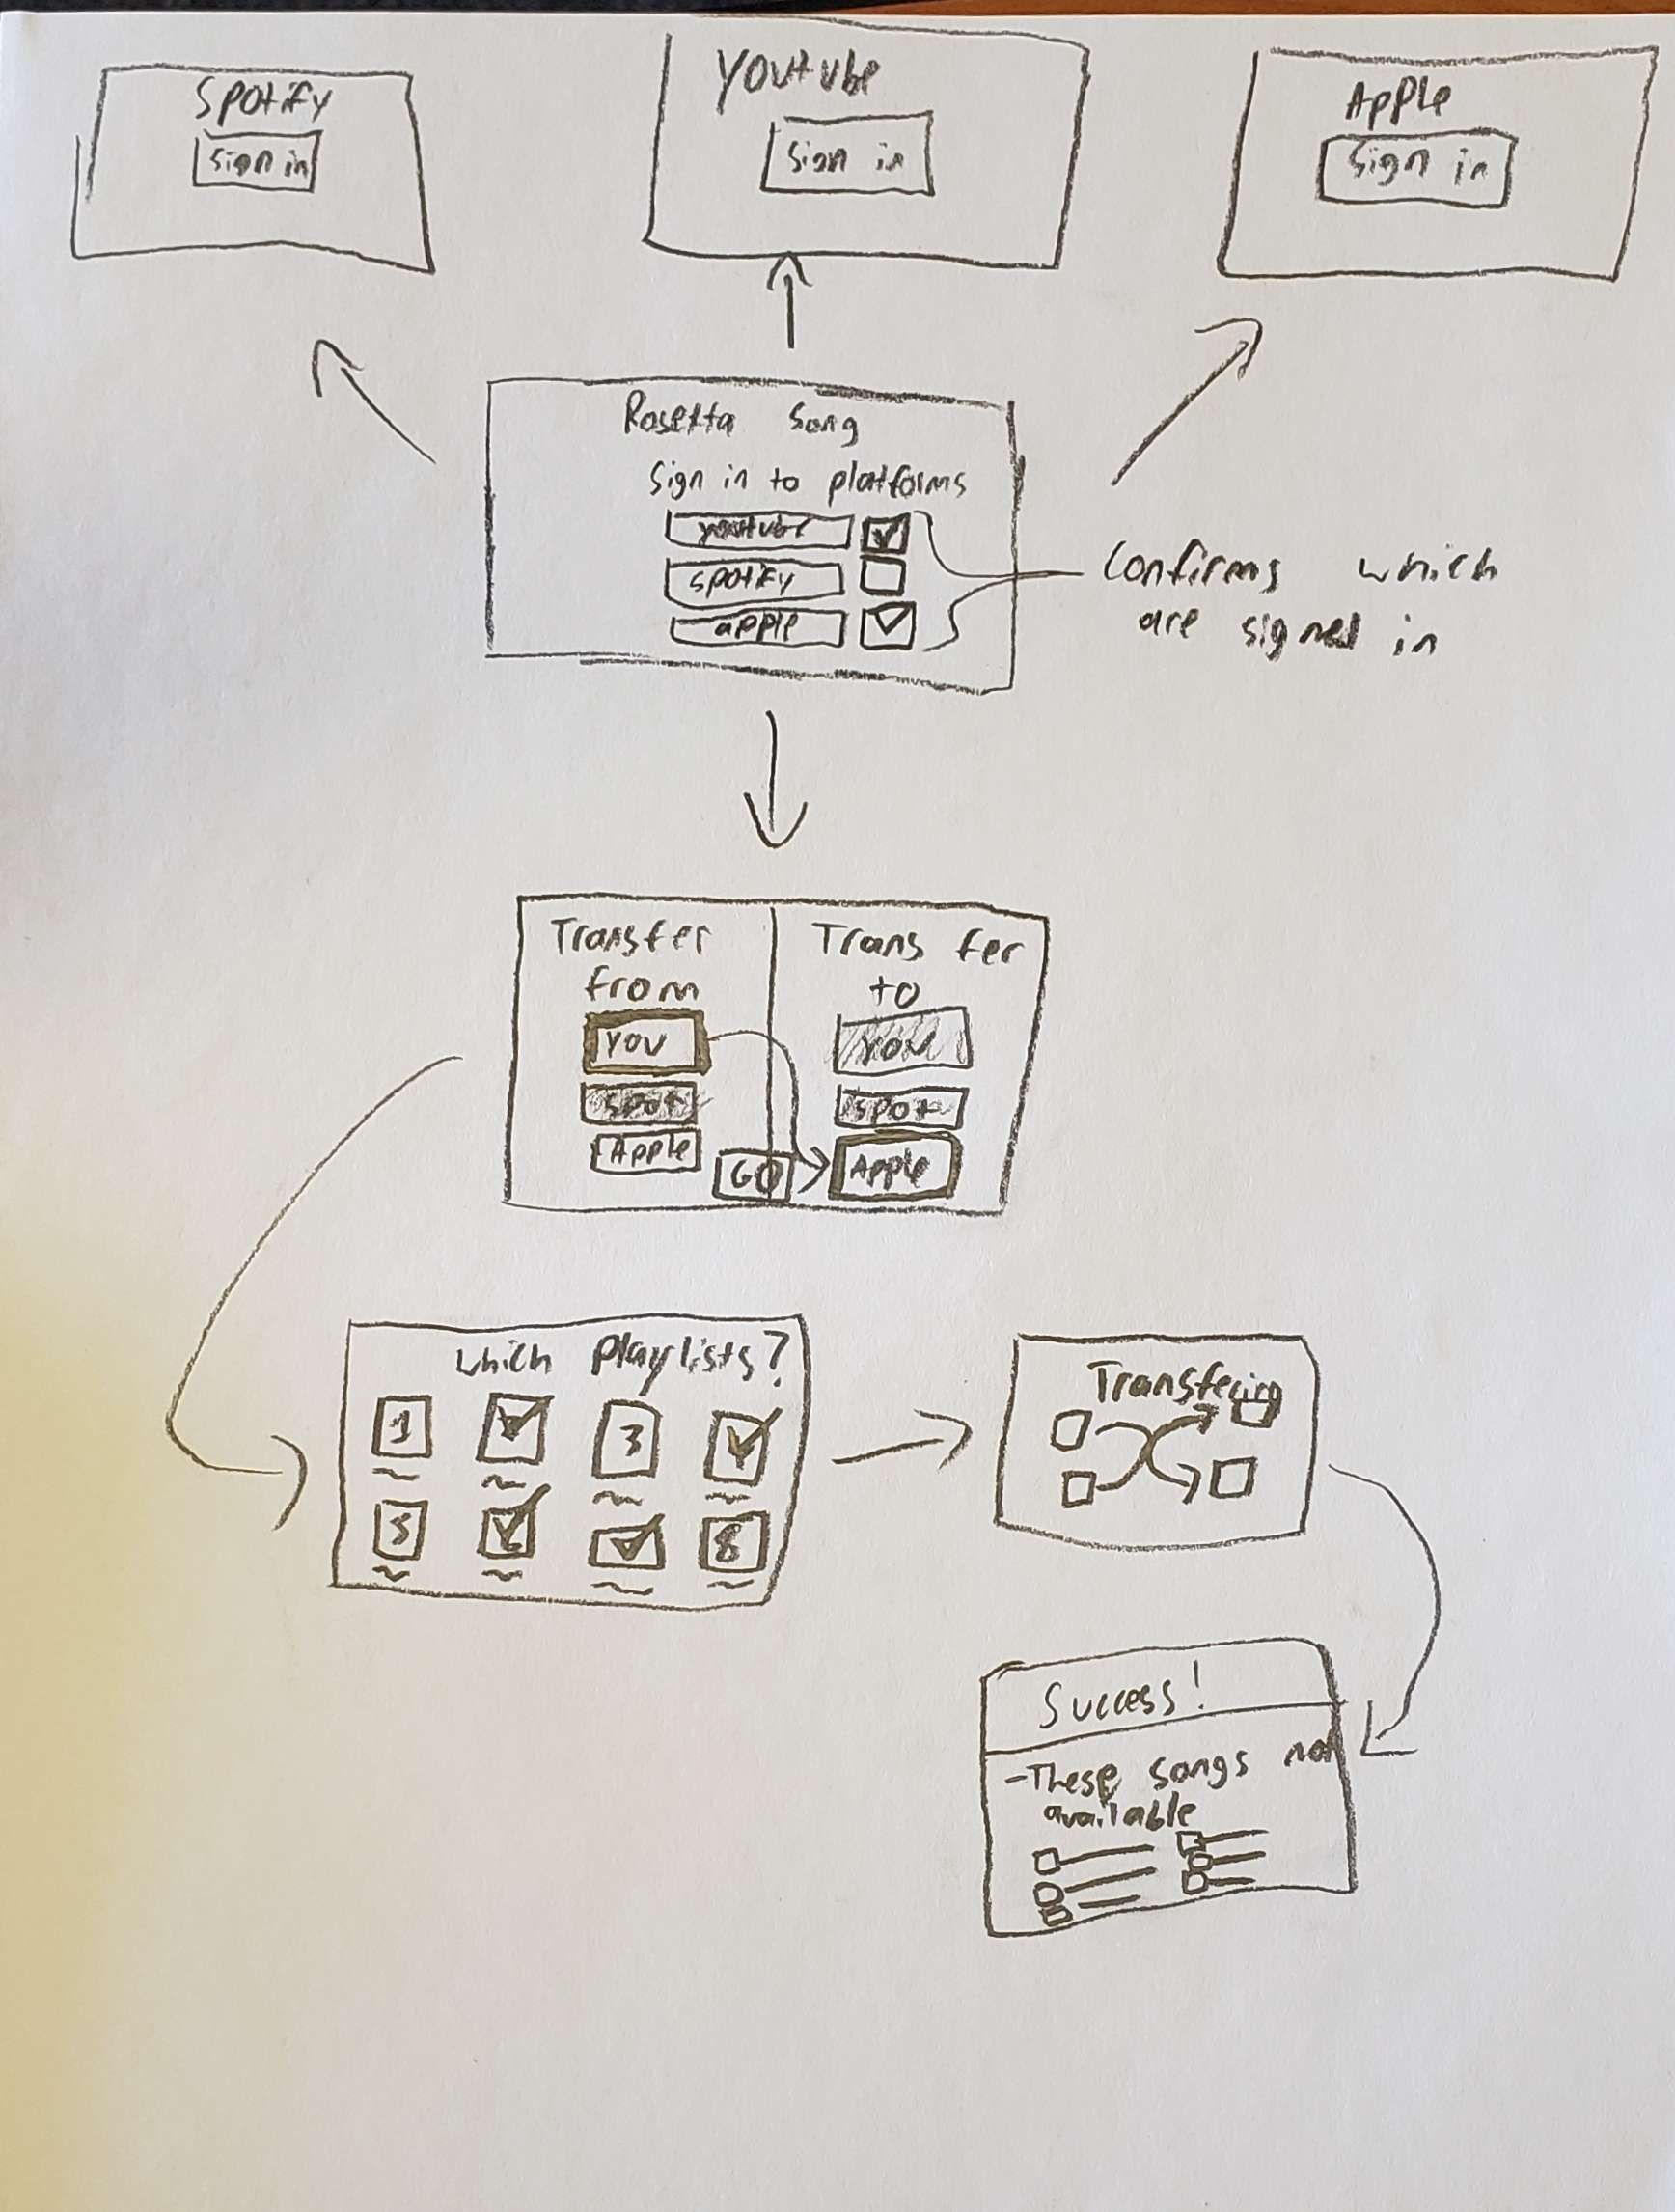 Spotify
Sign in
Youtube
Sign in
Apple
Sign in
Rosetta Song
Sign in to platforms
youtube
spotify
apple
Confirms which
are signed in
Transfer
from
You
Spot
Apple
GO
Transfer
to
You
Spot
Apple
Which Playlists?
1
3
5
8
Transfering
Success!
-These songs not
available